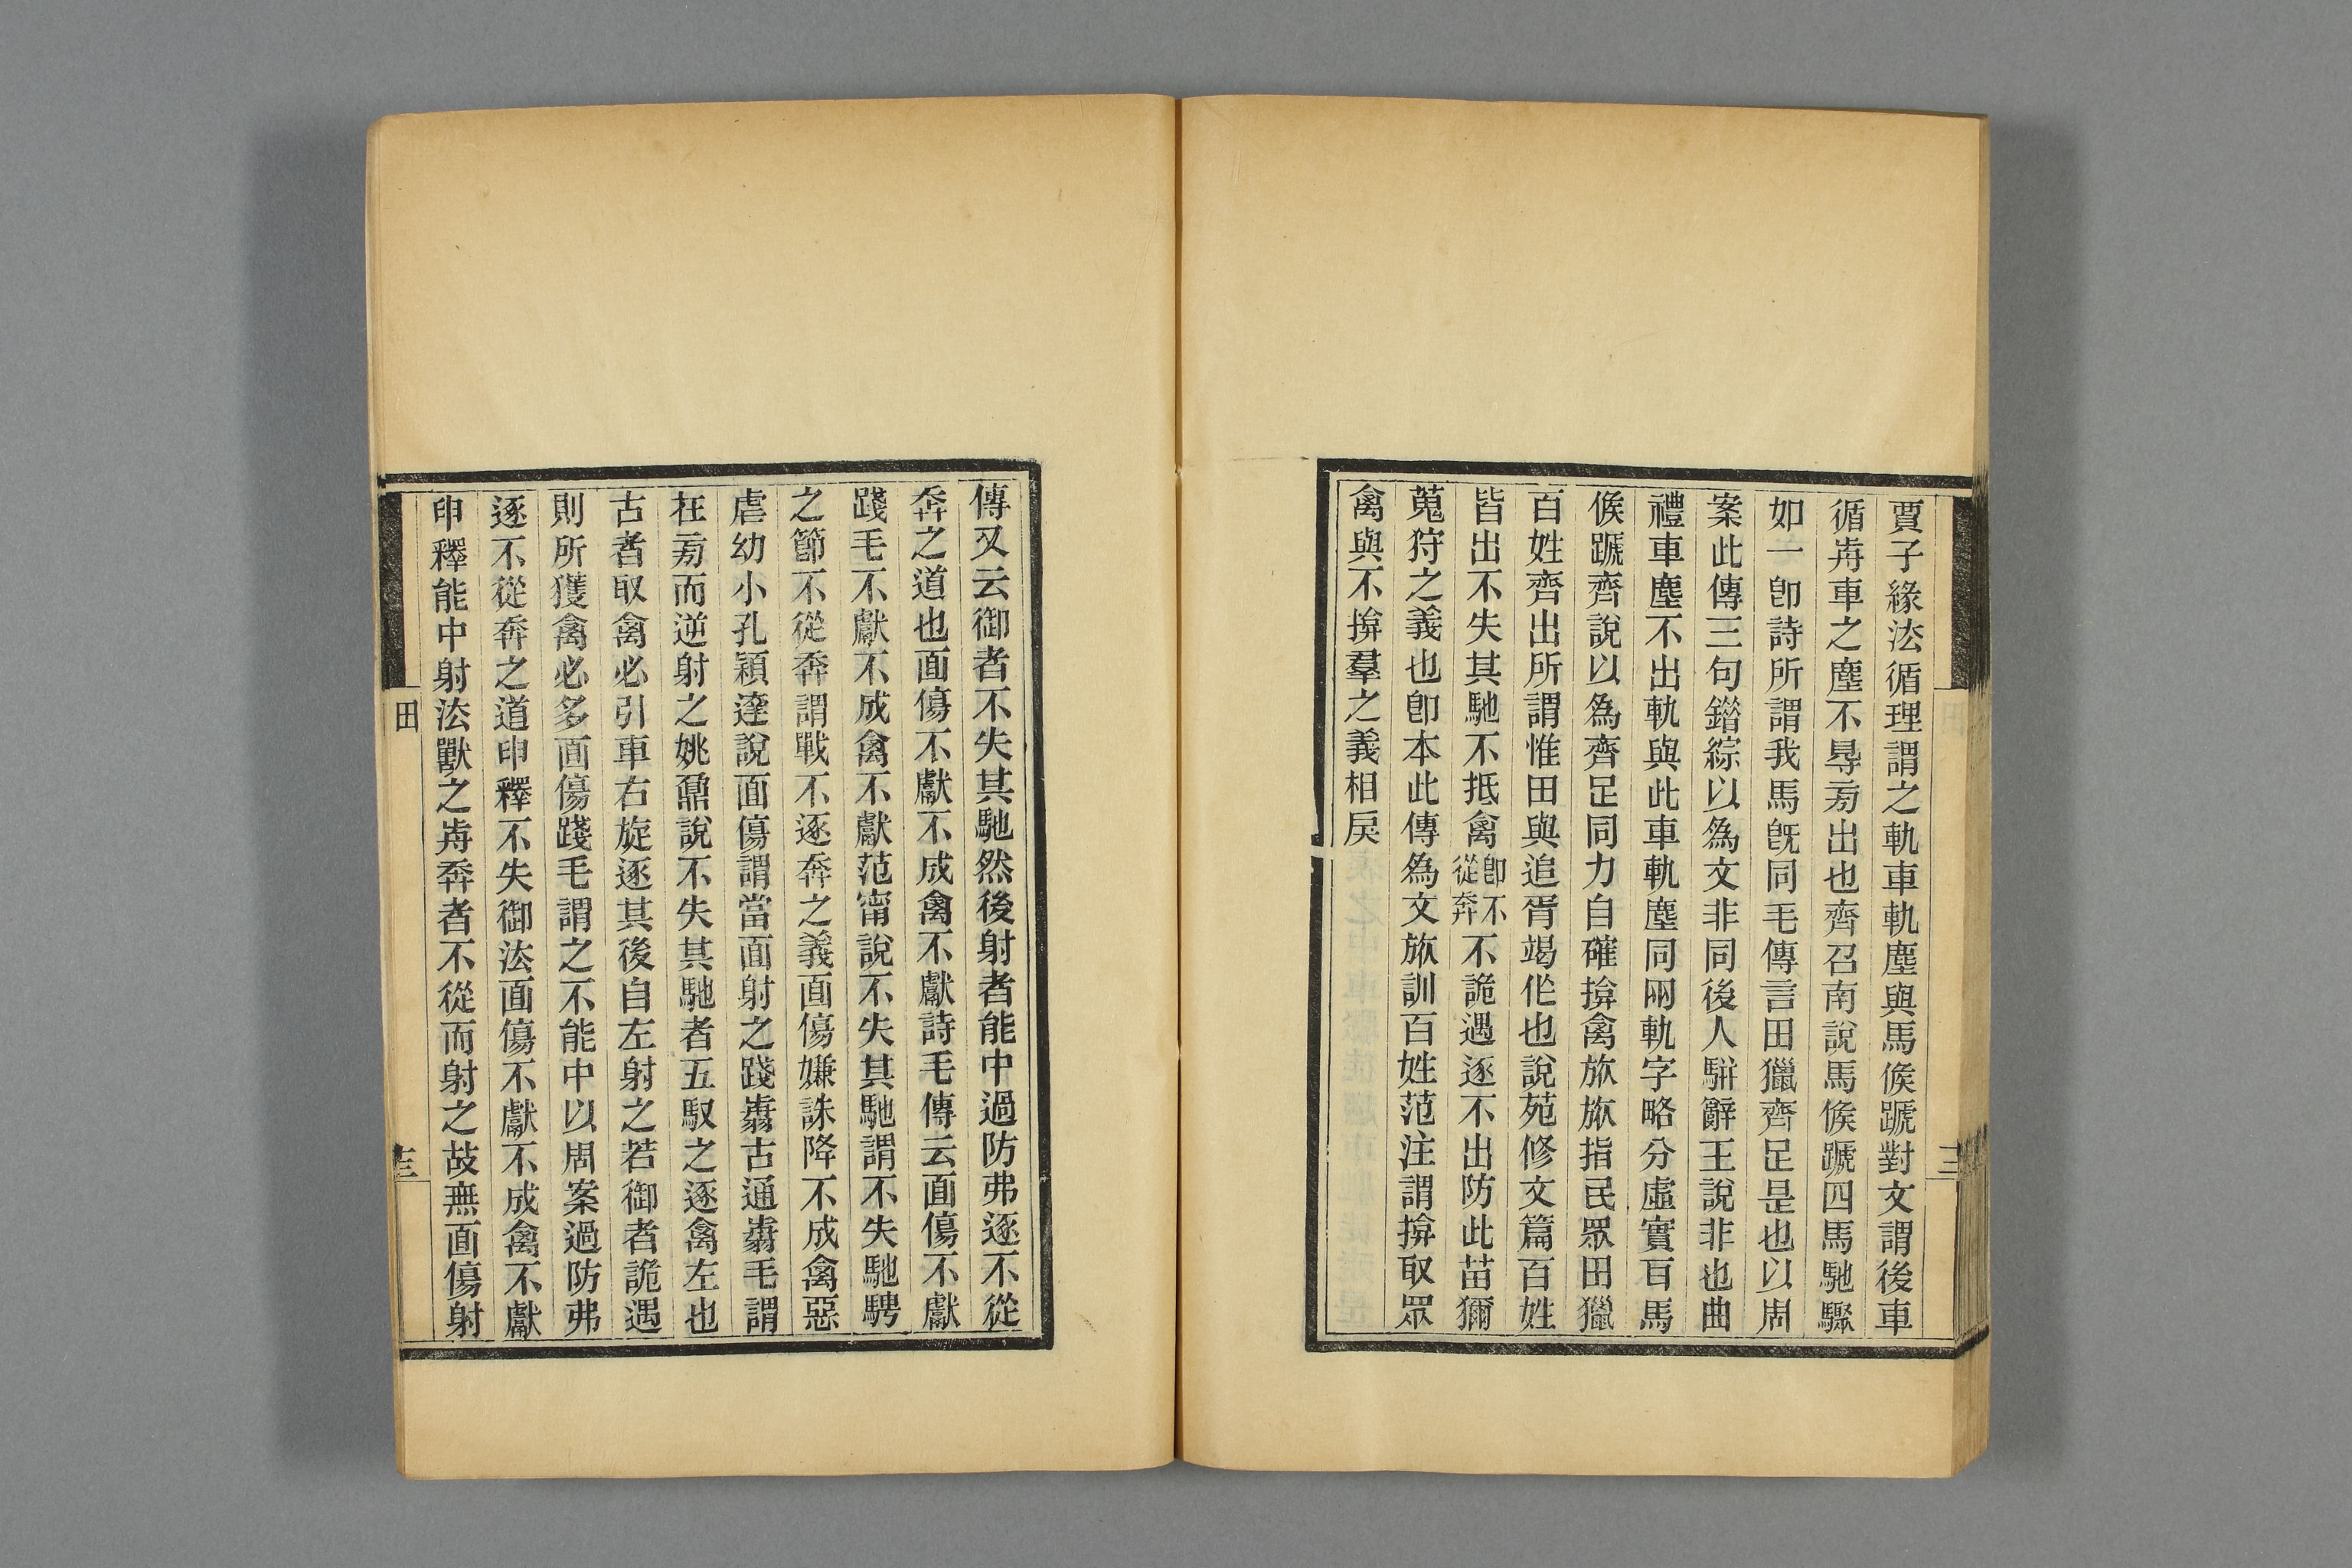 賈子緣法循理謂之軌車軌塵與馬候蹏對文謂後車
循歬車之塵不㝵旁出也齊召南說馬候蹏四馬馳驟
如一卽詩所謂我馬旣同毛傳言田獵齊足是也以周
案此傳三句錯綜以爲文非同後人騈辭王說非也曲
禮車塵不出軌與此車軌塵同㒳軌字略分虛實百馬
候蹏齊說以爲齊足同力自確揜禽旅旅指民眾田獵
百姓齊出所謂惟田與追胥竭作也說苑修文篇百姓
皆出不失其馳不抵禽卽不從奔不詭遇逐不出防此苗獮
蒐狩之義也卽本此傳爲文旅訓百姓范注謂揜取眾
禽與不揜羣之義相戾
傳又云御者不失其馳然後射者能中過防弗逐不從
奔之道也面傷不獻不成禽不獻詩毛傳云面傷不獻
踐毛不獻不成禽不獻范甯說不失其馳謂不失馳騁
之節不從奔謂戰不逐奔之義面傷嫌誅降不成禽惡
虐幼小孔穎達說面傷謂當面射之踐翦古通翦毛謂
在旁而逆射之姚鼐說不失其馳者五馭之逐禽左也
古者取禽必引車右旋逐其後自左射之若御者詭遇
則所獲禽必多面傷踐毛謂之不能中以周案過防弗
逐不從奔之道申釋不失御法面傷不獻不成禽不獻
申釋能中射法獸之歬奔者不從而射之故無面傷射
田
三